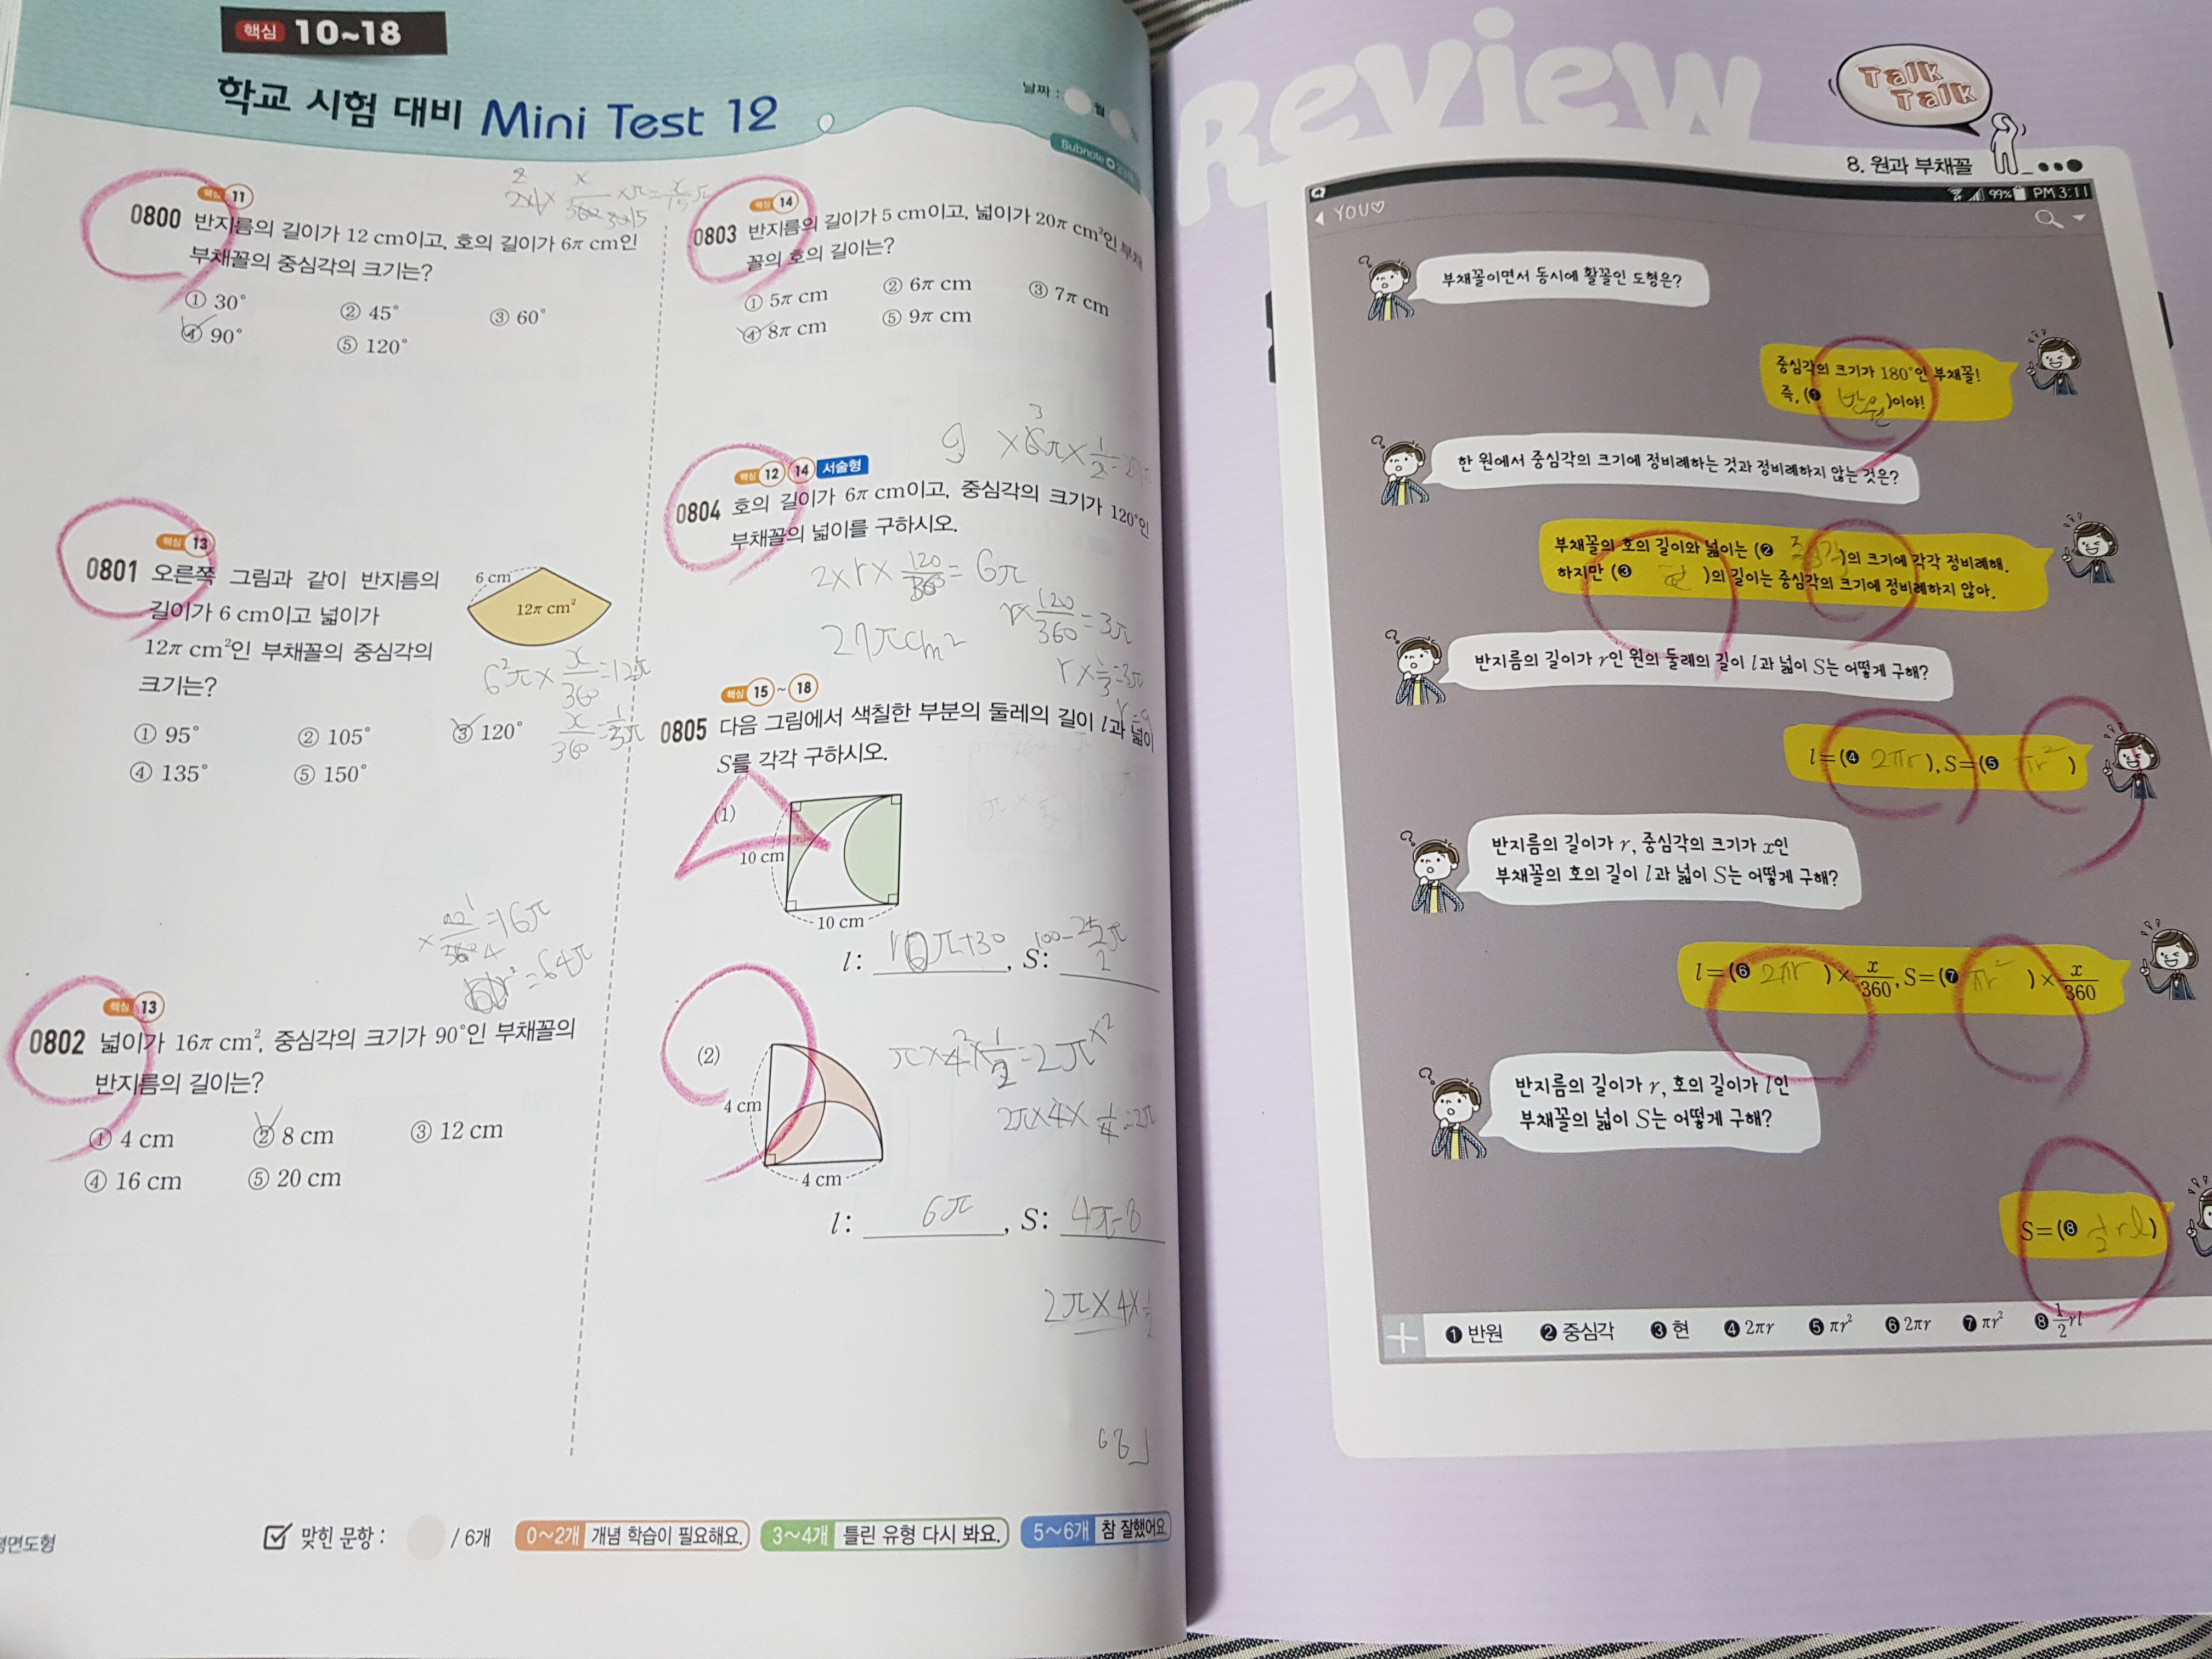 핵심 10~18
학교 시험 대비 Mini Test 12
날짜 : 월
Subnote
핵심 11
0800 반지름의 길이가 12 cm이고, 호의 길이가 6π cm인
부채꼴의 중심각의 크기는?
① 30° ② 45° ③ 60°
④ 90° ⑤ 120°
핵심 13
0801 오른쪽 그림과 같이 반지름의
길이가 6 cm이고 넓이가
12π cm²인 부채꼴의 중심각의
크기는?
6 cm
12π cm²
6²π× x/360 =12π
x/360 = 1/3
① 95° ② 105° ③ 120°
④ 135° ⑤ 150°
=16π
=64π
핵심 13
0802 넓이가 16π cm², 중심각의 크기가 90°인 부채꼴의
반지름의 길이는?
① 4 cm ② 8 cm ③ 12 cm
④ 16 cm ⑤ 20 cm
핵심 14
0803 반지름의 길이가 5 cm이고, 넓이가 20π cm²인 부채
꼴의 호의 길이는?
① 5π cm ② 6π cm ③ 7π cm
④ 8π cm ⑤ 9π cm
9 ×6π× 1/2
핵심 12 14 서술형
0804 호의 길이가 6π cm이고, 중심각의 크기가 120°인
부채꼴의 넓이를 구하시오.
2×r× 120/360 = 6π
r× 120/360 =3π
27πcm²
r× 1/3 =3π
r=9
핵심 15 ~ 18
0805 다음 그림에서 색칠한 부분의 둘레의 길이 l과 넓이
S를 각각 구하시오.
(1)
10 cm
10 cm
l: 10π+30 , S: 100- 25/2 π
(2)
4 cm
4 cm
π×4²× 1/2 =2π
2π×4× 1/4 =2π
l: 6π , S: 4π-8
2π×4× 1/2
평면도형
맞힌 문항 : / 6개
0~2개 개념 학습이 필요해요.
3~4개 틀린 유형 다시 봐요.
5~6개 참 잘했어요.
Review
Talk
Talk
8. 원과 부채꼴
99% PM 3:11
YOU♡
부채꼴이면서 동시에 활꼴인 도형은?
중심각의 크기가 180°인 부채꼴!
즉, (❶ 반원 )이야!
한 원에서 중심각의 크기에 정비례하는 것과 정비례하지 않는 것은?
부채꼴의 호의 길이와 넓이는 (❷ 중심각 )의 크기에 각각 정비례해.
하지만 (❸ 현 )의 길이는 중심각의 크기에 정비례하지 않아.
반지름의 길이가 r인 원의 둘레의 길이 l과 넓이 S는 어떻게 구해?
l=(❹ 2πr ), S=(❺ πr² )
반지름의 길이가 r, 중심각의 크기가 x인
부채꼴의 호의 길이 l과 넓이 S는 어떻게 구해?
l=(❻ 2πr )× x/360, S=(❼ πr² )× x/360
반지름의 길이가 r, 호의 길이가 l인
부채꼴의 넓이 S는 어떻게 구해?
S=(❽ 1/2 rl)
❶ 반원 ❷ 중심각 ❸ 현 ❹ 2πr ❺ πr² ❻ 2πr ❼ πr² ❽ 1/2 rl